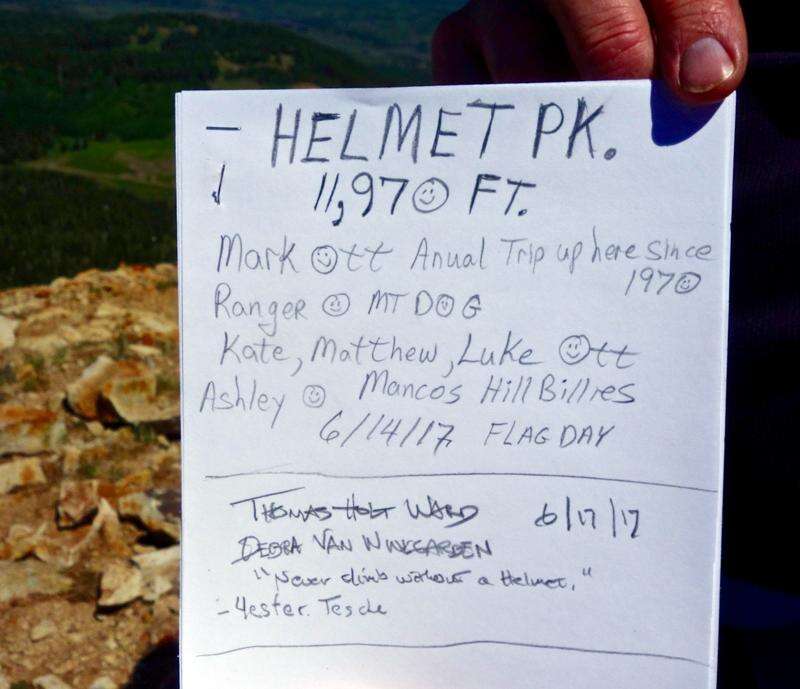 — HELMET PK.
11,970 FT.
Mark Ott Anual Trip up here since
1970
Ranger MT DOG
Kate, Matthew, Luke Ott
Ashley Mancos Hill Billies
6/14/17 FLAG DAY
THOMAS HOLT WARD 6/17/17
DEBRA VAN WINEGARDEN
"Never climb without a Helmet."
- Yester. Tesde